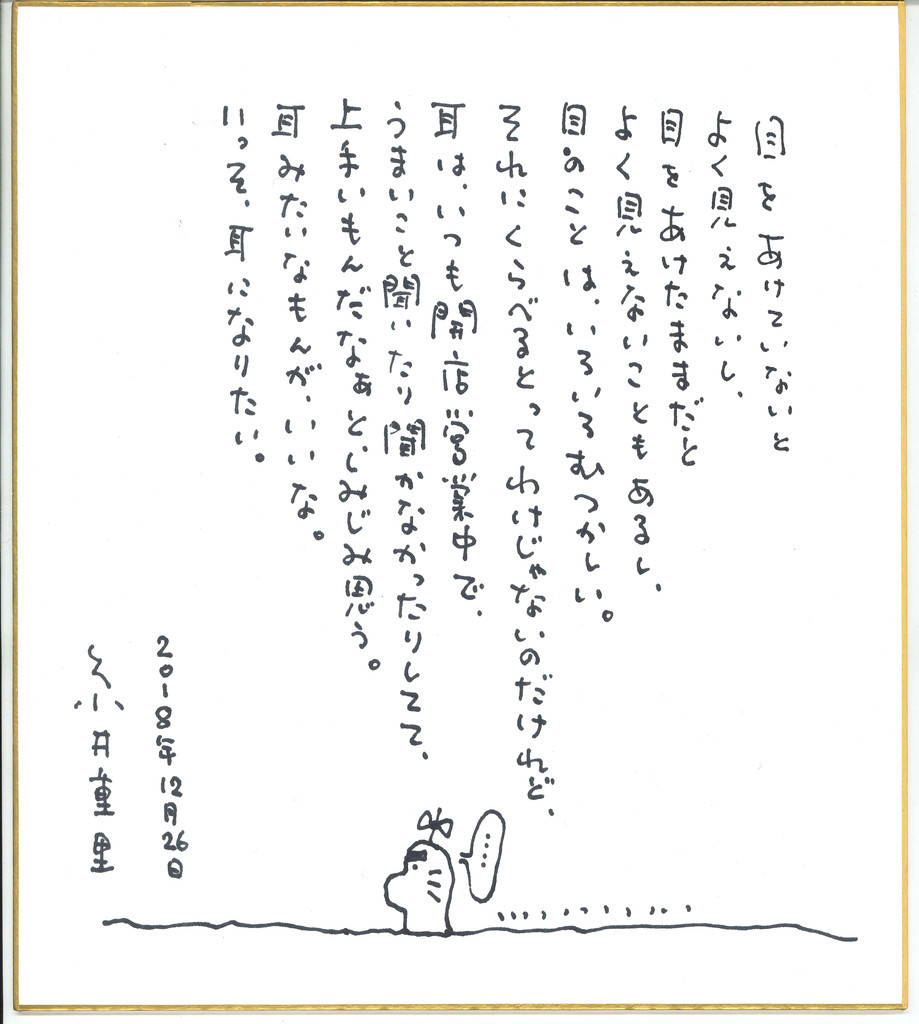 目をあけていないと
よく見えないし、
目をあけたままだと
よく見えないこともあるし、
目のことは、いろいろむつかしい。
それにくらべるとってわけじゃないのだけれど、
耳は、いつも開店営業中で、
うまいこと聞いたり聞かなかったりしてて、
上手いもんだなぁと、しみじみ思う。
耳みたいなもんが、いいな。
いっそ、耳になりたい。
2018年12月26日
糸井重里